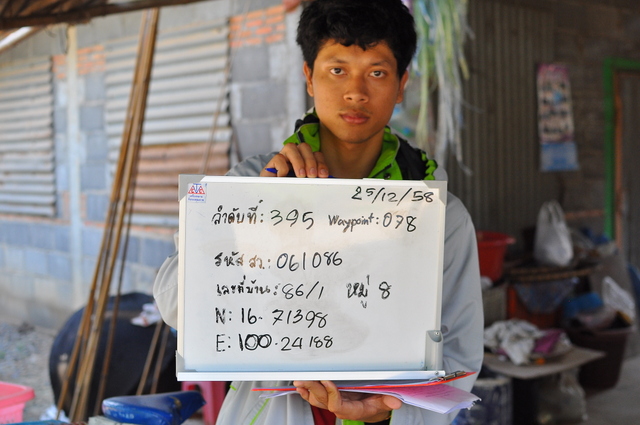 25/12/58
ลำดับที่: 395 Waypoint: 078
รหัส สว.: 061086
เลขที่บ้าน: 86/1 หมู่ 8
N: 16.71398
E: 100.24188